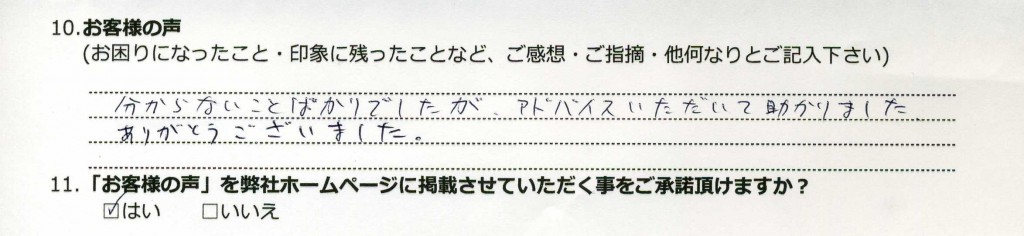 10.お客様の声
(お困りになったこと・印象に残ったことなど、ご感想・ご指摘・他何なりとご記入下さい)
分からないことばかりでしたが、アドバイスいただいて助かりました
ありがとうございました。
11.「お客様の声」を弊社ホームページに掲載させていただく事をご承諾頂けますか？
☑はい □いいえ